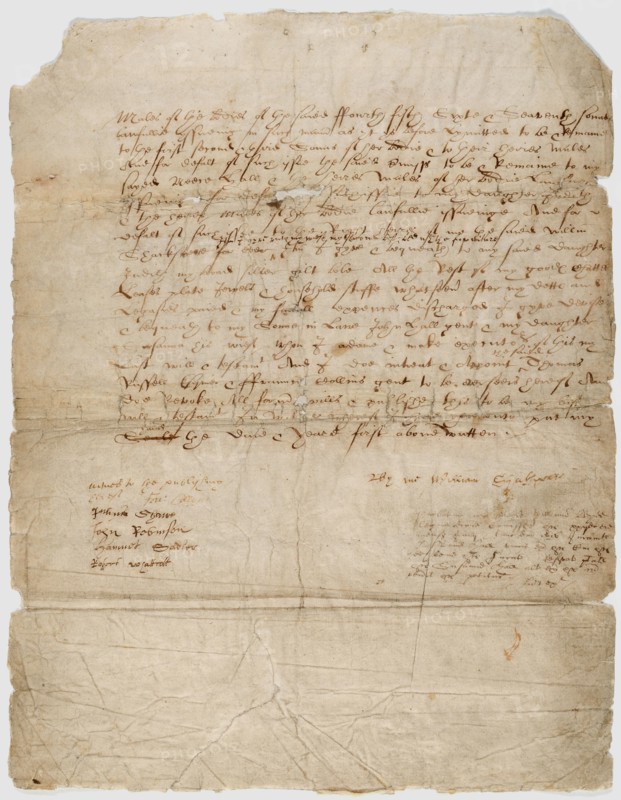 Males of the bodies of the saied ffourth fifth Sixte & Seaventh sonnes
lawfullie yssueing in such manner as yt ys before Lymitted to be & Remaine
to the first second & third Sonns of her bodie & to their heires Males
And for defalt of such yssue the saied premisses to be & Remaine to my
sayed Neece Hall & the heires Males of her bodie Lawfullie
yssueing And for defalt of such yssue to my Daughter Judith
& the heires Males of her bodie lawfullie yssueinge And for
defalt of such yssue to the Right heires of me the saied William
Item I gyve unto my wief my second best bed with the furniture
Shackspeare for ever Item I gyve & bequeath to my saied Daughter
Judith my broad silver gilt bole All the Rest of my goodes Chattels
Leases plate Jewels & household stuffe whatsoever after my dettes and
Legasies paied & my funerall expences discharged I gyve devise
& bequeath to my Sonne in Lawe John Hall gent & my daughter
Susanna his wief whom I ordaine & make executors of this my
the saied
Last will & testament And I doe intreat & Appoint Thomas
Russell Esquier & ffrauncis Collins gent to be overseers hereof And
doe Revoke All former wills & publishe this to be my last
will & testament In witnes whereof I have hereunto put my
hand
Seale the Daie & Yeare first above Written
witnes to the publishing
hereof Fra: Collyns
By me William Shakspeare
Julyus Shawe
John Robinson
Hamnet Sadler
Robert Whattcott